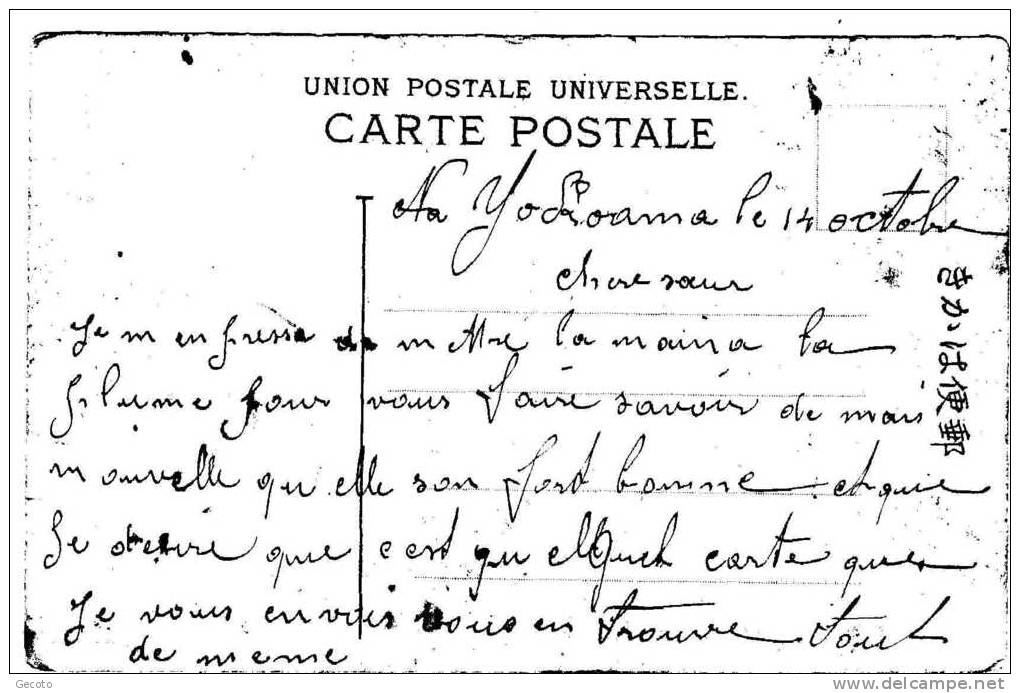 UNION POSTALE UNIVERSELLE.
CARTE POSTALE
Na Yokoama le 14 octobre
chere sœur
きかは便郵
Je m en presse de mettre la main a la
plume pour vous faire savoir de mais
nouvelle qu elle son fort bonne et que
Je desire que c est qu elquel carte que
Je vous envois vous en trouve tout
de meme
Gecoto
delcampe.net